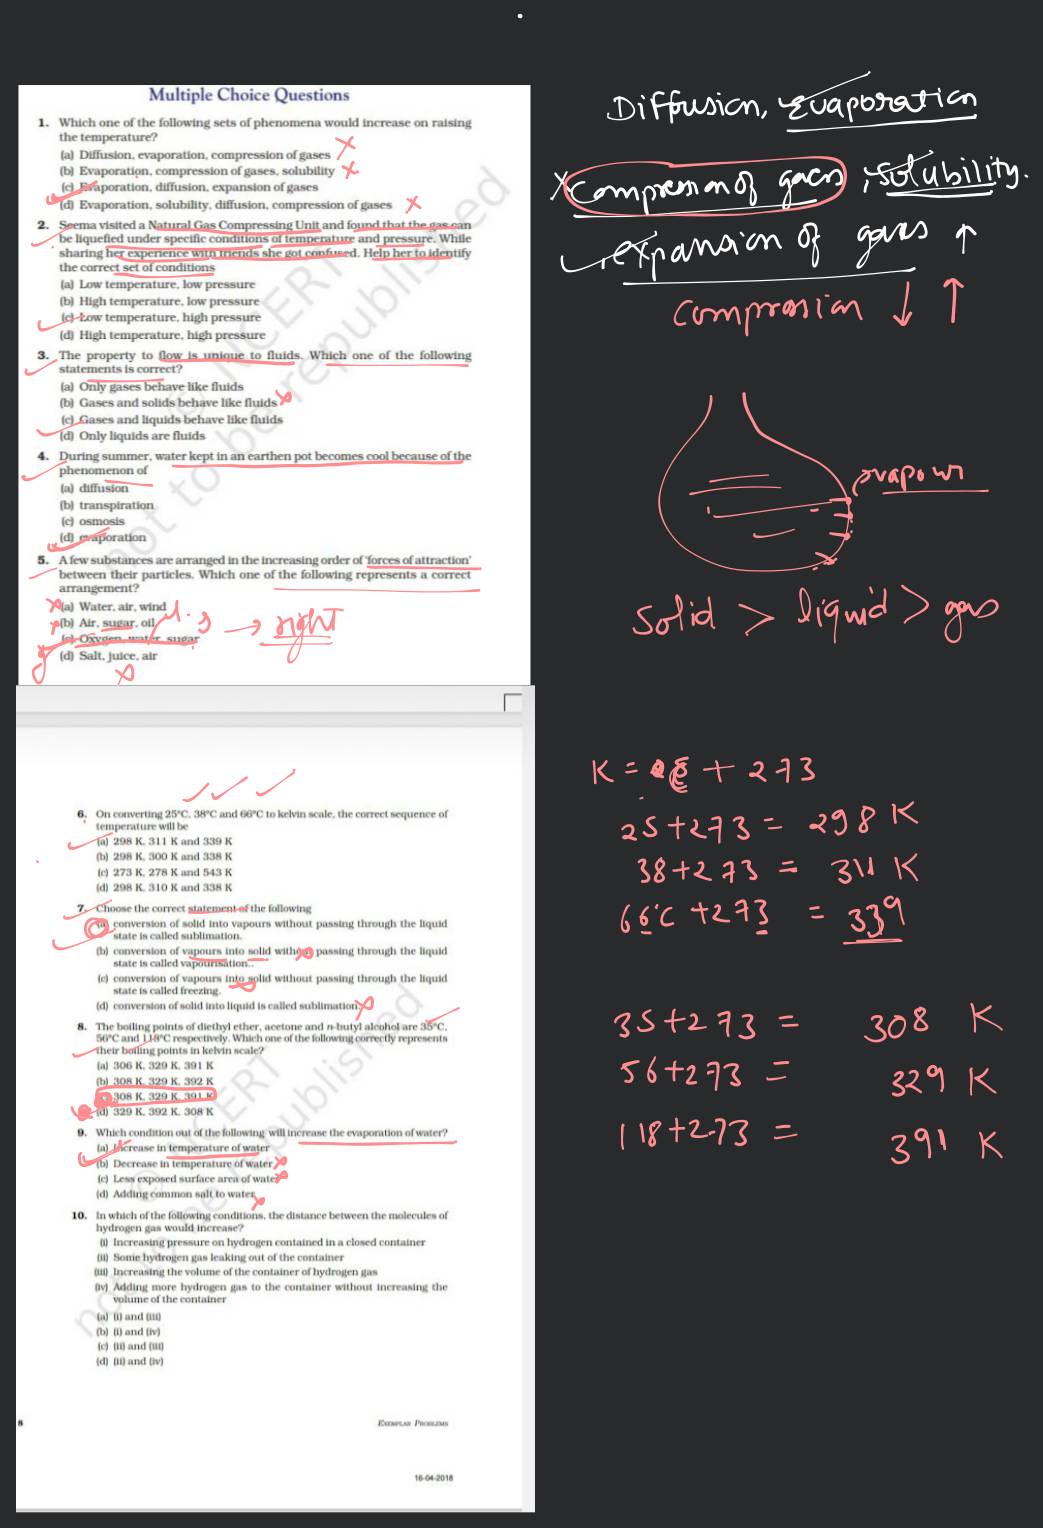 Multiple Choice Questions
1. Which one of the following sets of phenomena would increase on raising
the temperature?
(a) Diffusion, evaporation, compression of gases
(b) Evaporation, compression of gases, solubility
(c) Evaporation, diffusion, expansion of gases
(d) Evaporation, solubility, diffusion, compression of gases
2. Seema visited a Natural Gas Compressing Unit and found that the gas can
be liquefied under specific conditions of temperature and pressure. While
sharing her experience with friends she got confused. Help her to identify
the correct set of conditions
(a) Low temperature, low pressure
(b) High temperature, low pressure
(c) Low temperature, high pressure
(d) High temperature, high pressure
3. The property to flow is unique to fluids. Which one of the following
statements is correct?
(a) Only gases behave like fluids
(b) Gases and solids behave like fluids
(c) Gases and liquids behave like fluids
(d) Only liquids are fluids
4. During summer, water kept in an earthen pot becomes cool because of the
phenomenon of
(a) diffusion
(b) transpiration
(c) osmosis
(d) evaporation
5. A few substances are arranged in the increasing order of 'forces of attraction'
between their particles. Which one of the following represents a correct
arrangement?
(a) Water, air, wind
(b) Air, sugar, oil
(c) Oxygen, water, sugar
(d) Salt, juice, air
→ right
© NCERT
not to be republished
Diffusion, evaporation
compression of gases, solubility.
expansion of gases ↑
compression ↓ ↑
evapour
solid > liquid > gas
6. On converting 25°C, 38°C and 66°C to kelvin scale, the correct sequence of
temperature will be
(a) 298 K, 311 K and 339 K
(b) 298 K, 300 K and 338 K
(c) 273 K, 278 K and 543 K
(d) 298 K, 310 K and 338 K
7. Choose the correct statement of the following
(a) conversion of solid into vapours without passing through the liquid
state is called sublimation.
(b) conversion of vapours into solid without passing through the liquid
state is called vapourisation.
(c) conversion of vapours into solid without passing through the liquid
state is called freezing.
(d) conversion of solid into liquid is called sublimation.
8. The boiling points of diethyl ether, acetone and n-butyl alcohol are 35°C,
56°C and 118°C respectively. Which one of the following correctly represents
their boiling points in kelvin scale?
(a) 306 K, 329 K, 391 K
(b) 308 K, 329 K, 392 K
308 K, 329 K, 391 K
(d) 329 K, 392 K, 308 K
9. Which condition out of the following will increase the evaporation of water?
(a) Increase in temperature of water
(b) Decrease in temperature of water
(c) Less exposed surface area of water
(d) Adding common salt to water
10. In which of the following conditions, the distance between the molecules of
hydrogen gas would increase?
(i) Increasing pressure on hydrogen contained in a closed container
(ii) Some hydrogen gas leaking out of the container
(iii) Increasing the volume of the container of hydrogen gas
(iv) Adding more hydrogen gas to the container without increasing the
volume of the container
(a) (i) and (iii)
(b) (i) and (iv)
(c) (ii) and (iii)
(d) (ii) and (iv)
8
EXEMPLAR PROBLEMS
16-04-2018
© NCERT
not to be republished
25+273 = 298 K
38+273 = 311 K
66°C +273 = 339
35+273 = 308 K
56+273 = 329 K
118+273 = 391 K